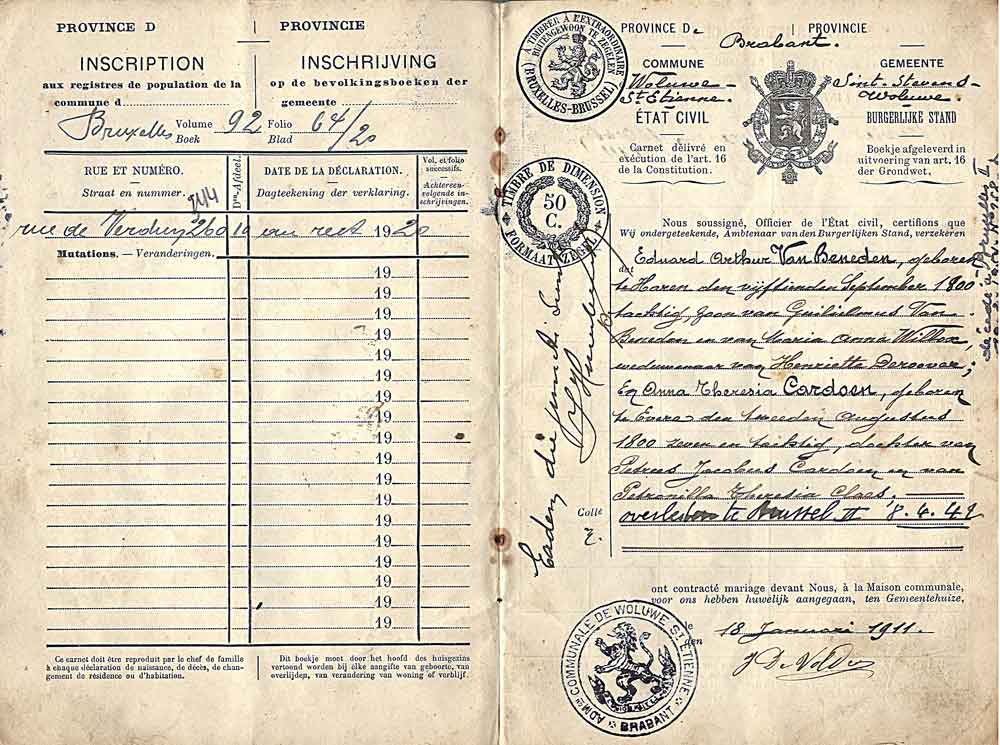 PROVINCE D
PROVINCIE
INSCRIPTION
aux registres de population de la
commune d
INSCHRIJVING
op de bevolkingsboeken der
gemeente
Bruxelles Volume 92 Folio 64/20
Boek Blad
RUE ET NUMÉRO.
Straat en nummer.
Dᵒⁿ-Afdeel.
DATE DE LA DÉCLARATION.
Dagteekening der verklaring.
Vol. et folio
successifs.
Achtereen-
volgende in-
schrijvingen.
344
rue de Verdun 260 10 au rect 1920
Mutations. — Veranderingen.
19
19
19
19
19
19
19
19
19
19
19
19
19
19
19
19
19
Ce carnet doit être reproduit par le chef de famille
à chaque déclaration de naissance, de décès, de chan-
gement de résidence ou d'habitation.
Dit boekje moet door het hoofd des huisgezins
vertoond worden bij elke aangifte van geboorte, van
overlijden, van verandering van woning of verblijf.
A TIMBRER A L'EXTRAORDINAIRE
BUITENGEWOON TE ZEGELEN
(BRUXELLES-BRUSSEL)
PROVINCE De
PROVINCIE
Brabant.
COMMUNE
Woluwe-
St Etienne.
ÉTAT CIVIL
Carnet délivré en
exécution de l'art. 16
de la Constitution.
GEMEENTE
Sint-Stevens-
Woluwe.
BURGERLIJKE STAND
Boekje afgeleverd in
uitvoering van art. 16
der Grondwet.
TIMBRE DE DIMENSION
50
C.
FORMAATZEGEL
Nous soussigné, Officier de l'État civil, certifions que
Wij ondergeteekende, Ambtenaar van den Burgerlijken Stand, verzekeren
dat
Eduard Arthur Van Beneden, geboren
te Haren den vijftienden September 1800
tachtig, zoon van Guilielmus Van
Beneden en van Maria Anna Willox,
weduwenaar van Henriette Deroover;
En Anna Theresia Cardoen, geboren
te Evere den tweeden Augustus
1800 zeven en tachtig, dochter van
Petrus Jacobus Cardoen en van
Petronilla Theresia Claes,
overleden te Brussel II 8.6.42
Colle
ont contracté mariage devant Nous, à la Maison communale,
voor ons hebben huwelijk aangegaan, ten Gemeentehuize,
le
den
18 Januari 1911.
ADMᵒⁿ COMMUNALE DE WOLUWE-ST-ETIENNE
BRABANT